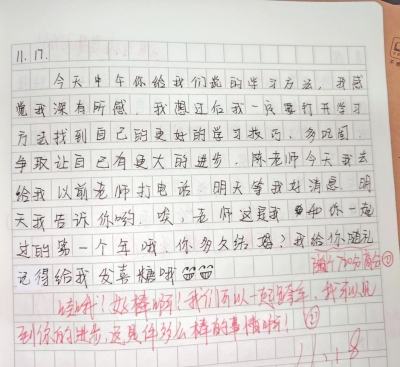 11.17.
今天中午你给我们说的学习方法，我感
觉我深有所感，我想过后我一定要打开学习
方法找到自己的更好的学习技巧，多吃闻，
争取让自己有更大的进步。陈老师今天我去
给我以前老师打电话，明天等我好消息，明
天我告诉你哟。唉，老师这是我和你一起
过的第一个年哦。你多久结婚？我给你随礼
记得给我发喜糖哦
满个730分高分
哇哦！好棒啊！我们可以一起跨年，我可以见
到你的进步，这是件多么棒的事情啊！
11.18